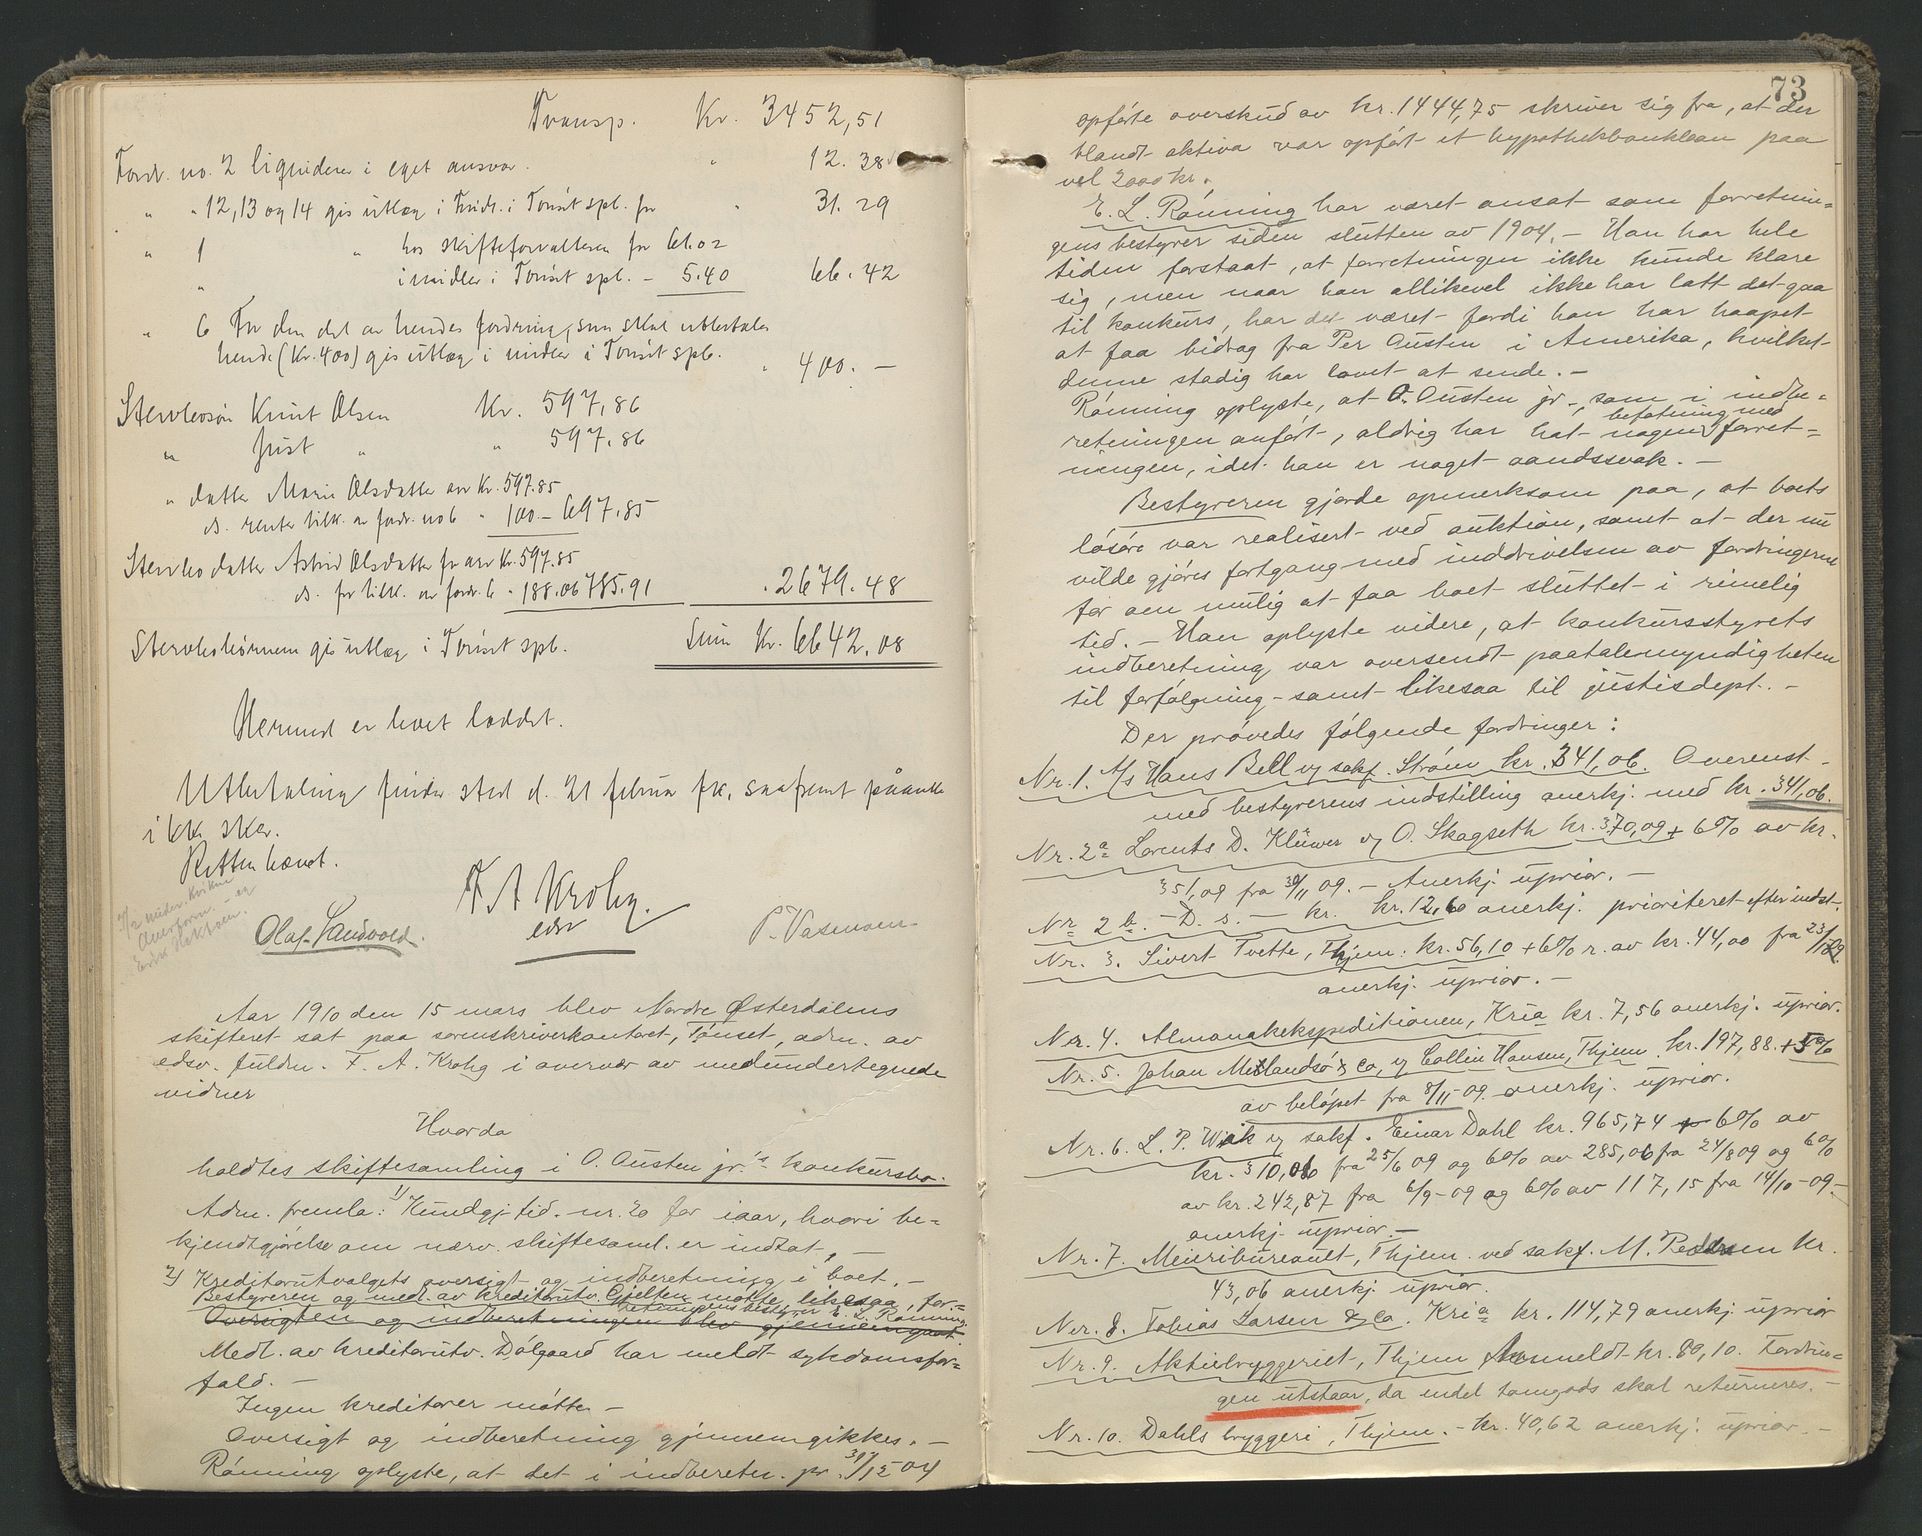 Transp. Kr. 3452,51
Fordr. no. 2 liquiderer i eget ansvar. " 12.38
" " 12, 13 og 14 gis utlæg i Indt. i Tønset spb. for " 31.29
" 1 " hos skifteforvalteren for 61.02
" i midler i Tønset spb. – 5.40 66.42
" 6 For den del av hendes fordring, som skal utbetales
hende (Kr. 400) gis utlæg i midler i Tønset spb. " 400.–
Stervbosøn Knut Olsen Kr. 597,86
" Just " " 597.86
" datter Marie Olsdatter arv Kr. 597.85
ds. renter tilk. av fordr. no 6 " 100.– 697.85
Stervbodatter Astrid Olsdatter for arv Kr. 597.85
ds. for tilk. av fordr. 6 " 188.06 785.91 . 2679.48
Stervbobørnene gis utlæg i Tønset spb. Sum Kr. 6642,08
Hermed er boet loddet.
Utbetaling finder sted d. 21 februar fk. saafremt påanke
ikke sker.
Retten hævet.
F A Krohg
edsv
Olaf Sandvold. P. Vasmoen
Aar 1910 den 15 mars blev Nordre Østerdalens
skifteret sat paa sorenskriverkontoret, Tønset, adm. av
edsv. fuldm. F. A. Krohg i overvær av medundertegnede
vidner
Hvorda
holdtes skiftesamling i O. Austen jr's konkursbo.
Adm. fremla: 1/ Kundgj. tid. nr. 20 for iaar, hvori be=
kjendtgjørelse om nærv. skiftesaml. er indtat, –
2/ Kreditorutvalgets oversigt og indberetning i boet. –
Bestyreren og medl. av kreditorutv. Gjelten møtte, likesaa for=
retningens bestyrer E. L. Rønning.
Oversigten og indberetningen blev gjennemgaat
Medl. av kreditorutv. Dølgaard har meldt sykdomsfor=
fald. –
Ingen kreditorer møtte –
Oversigt og indberetning gjennemgikkes. –
Rønning oplyste, at det i indbereten. pr. 31/12 04
73
opførte overskud av kr. 1444,75 skriver sig fra, at der
blandt aktiva var opført et hypothekbanklaan paa
vel 2000 kr.
E. L. Rønning har været ansat som forretnin=
gens bestyrer siden slutten av 1904. – Han har hele
tiden forstaat, at forretningen ikke kunde klare
sig, men naar han allikevel ikke har latt det gaa
til konkurs, har det været fordi han har haapet
at faa bidrag fra Per Austen i Amerika, hvilket
denne stadig har lovet at sende. –
Rønning oplyste, at O. Austen jr., som i indbe=
retningen anført, aldrig har hat nogen befatning med forret=
ningen, idet han er noget aandssvak. –
Bestyreren gjorde opmerksom paa, at boets
løsøre var realisert ved auktion, samt at der nu
vilde gjøres fortgang med inddrivelsen av fordringerne
for om mulig at faa boet sluttet i rimelig
tid. – Han oplyste videre, at konkursstyrets
indberetning var oversendt paatalemyndigheten
til forfølgning – samt likesaa til justisdept. –
Der prøvedes følgende fordringer:
Nr. 1. A/s Hans Bell v/ sakf. Strøm kr. 341,06. Overenst-
med bestyrerens indstilling anerkj. med kr. 341,06.
Nr. 2a Lorents D. Klüwer v/ O. Skagseth kr. 370,09 + 6% av kr.
351,09 fra 30/11 09. – Anerkj. uprior. –
Nr 2 b. – D. s. – kr. kr. 12,60 anerkj. prioriteret efter indst.
Nr. 3. Sivert Tvette, Thjem: kr. 56,10 + 6% r. av kr. 44,00 fra 23/12 09.
anerkj. uprior. –
Nr. 4. Almanakekspeditionen, Kria kr. 7,56 anerkj. uprior.
Nr. 5. Johan Melandsø & Co, v/ Collin Hansen, Thjem kr. 197,88 + 5%
av beløpet fra 8/11 09 anerkj. uprior.
Nr. 6. L. P. Wiik v/ sakf. Einar Dahl kr. 965,74 + 6% av
kr. 310,06 fra 25/6 09 og 6% av 285,06 fra 24/8 09 og 6%
av kr. 242,87 fra 6/9-09 og 6% av 117,15 fra 14/10-09 –
anerkj. uprior. –
Nr. 7. Meieribureauet, Thjem ved sakf. M. Pedersen kr.
43,06 anerkj. uprior.
Nr. 8. Tobias Larsen & Co. Kria kr. 114,79 anerkj. uprior
Nr. 9. Aktiebryggeriet, Thjem Anmeldt kr. 80,10. Fordrin=
gen utstaar, da endel tomgods skal returneres. –
Nr. 10. Dahls bryggeri, Thjem. – kr. 40,62 anerkj. uprior. –